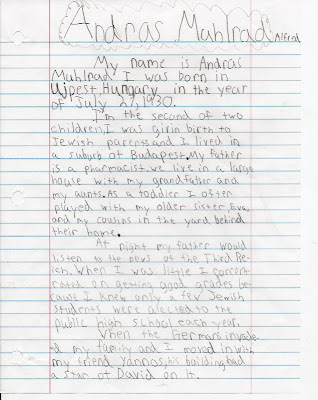 Andras Muhlrad
Alfred
My name is Andras
Muhlrad I was born in
Ujpest, Hungary in the year
of July 27, 1930.
I'm the second of two
children. I was girin birth to
Jewish parents and I lived in
a suburb of Budapest. My father
is a pharmacist. we live in a large
house with my grandfather and
my aunts. As a toddler I often
played with my older sister, Eva,
and my cousins in the yard behind
their home.
At night my father would
listen to the news of the Third Re-
ich. When I was little I concent
rated on getting good grades be-
cause I knew only a few Jewish
students were alected to the
public high school each year.
When the Germans invade
d my family and I moved in with
my friend Yannos, his building had
a star of David on it.